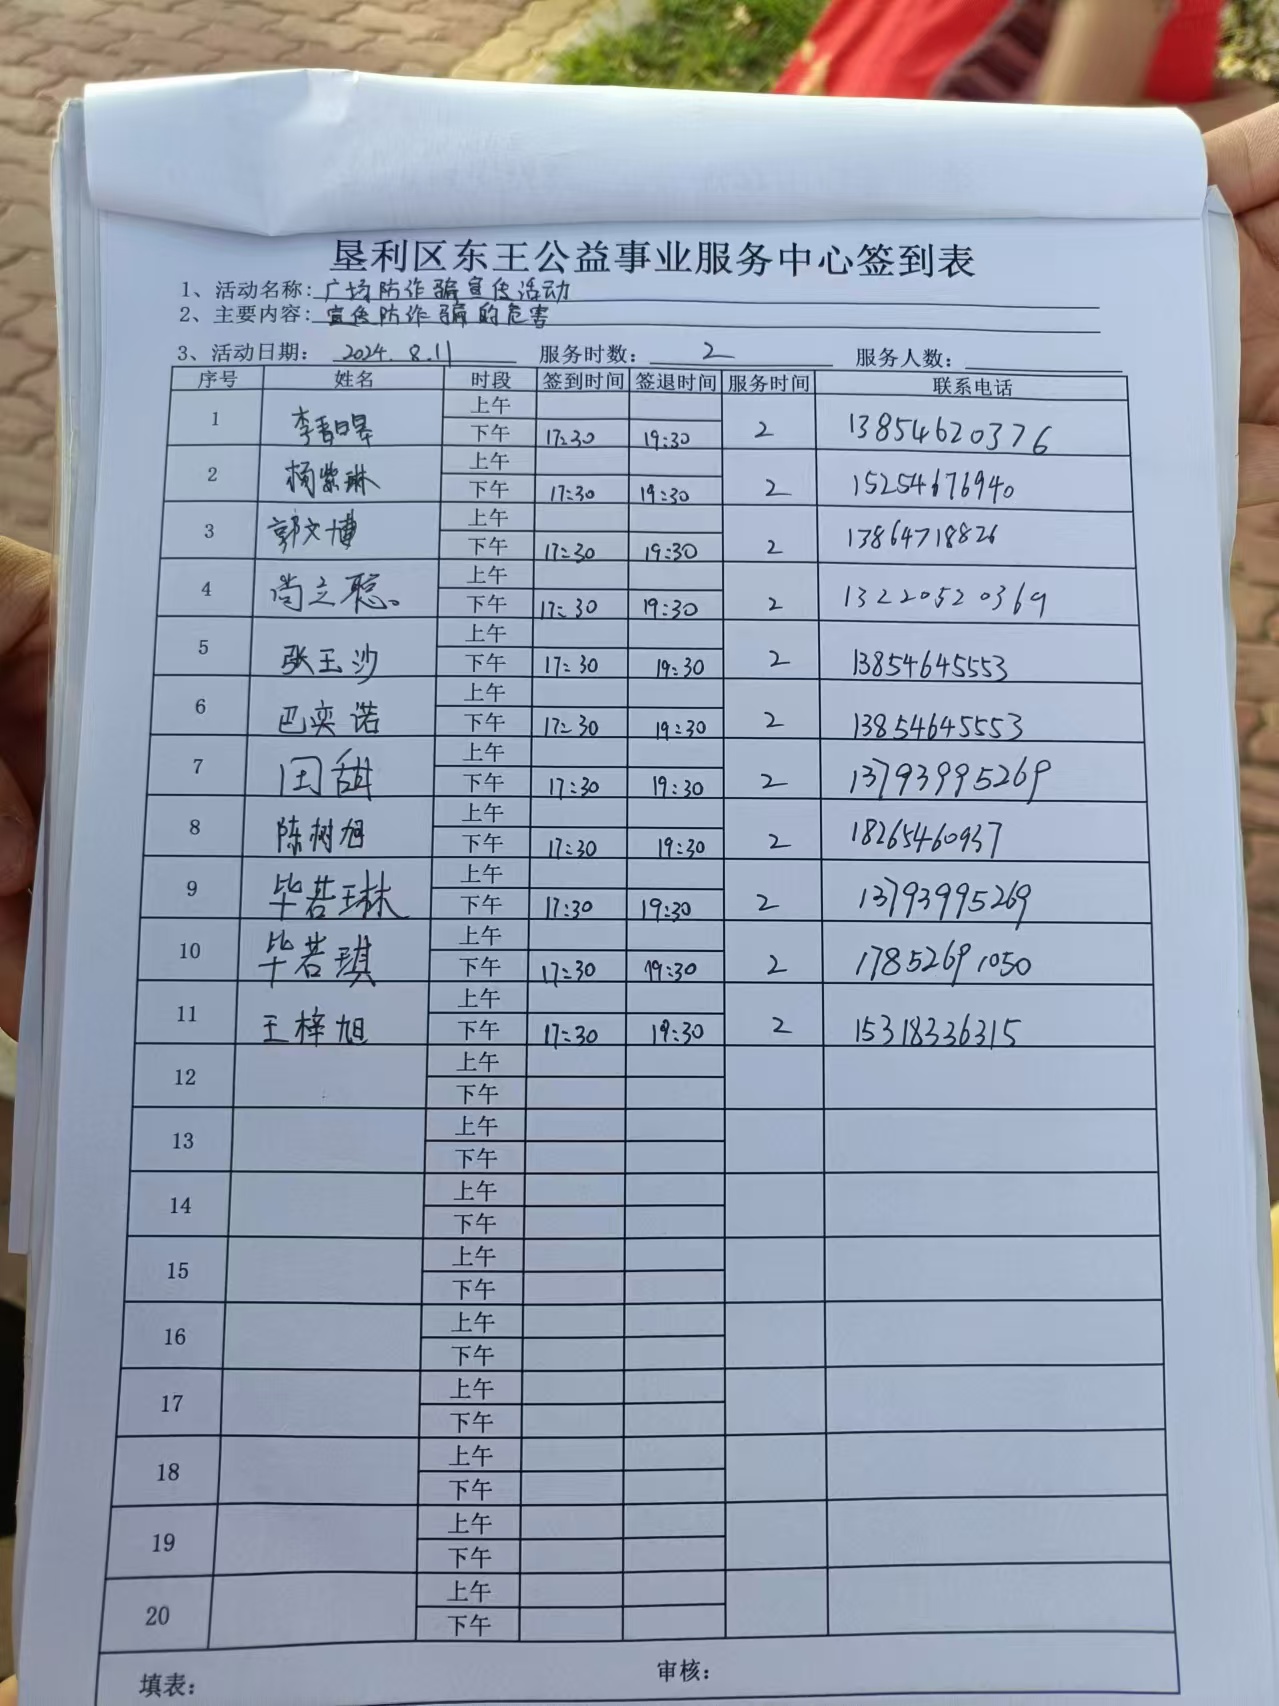 垦利区东王公益事业服务中心签到表
1、活动名称：广场防诈骗宣传活动
2、主要内容：宣传防诈骗的危害
3、活动日期：2024.8.11 服务时数：2 服务人数：
序号 姓名 时段 签到时间 签退时间 服务时间 联系电话
1 李 上午
下午 17:30 19:30 2 13854620376
2 杨紫琳 上午
下午 17:30 19:30 2 15254676940
3 郭文博 上午
下午 17:30 19:30 2 13864718826
4 尚之聪。 上午
下午 17:30 19:30 2 13220520369
5 张玉沙 上午
下午 17:30 19:30 2 13854645553
6 巴奕诺 上午
下午 17:30 19:30 2 13854645553
7 田甜 上午
下午 17:30 19:30 2 13793995269
8 陈树旭 上午
下午 17:30 19:30 2 18265460937
9 毕若琳 上午
下午 17:30 19:30 2 13793995269
10 毕若琪 上午
下午 17:30 19:30 2 17852691050
11 王梓旭 上午
下午 17:30 19:30 2 15318336315
12 上午
下午
13 上午
下午
14 上午
下午
15 上午
下午
16 上午
下午
17 上午
下午
18 上午
下午
19 上午
下午
20 上午
下午
填表： 审核：